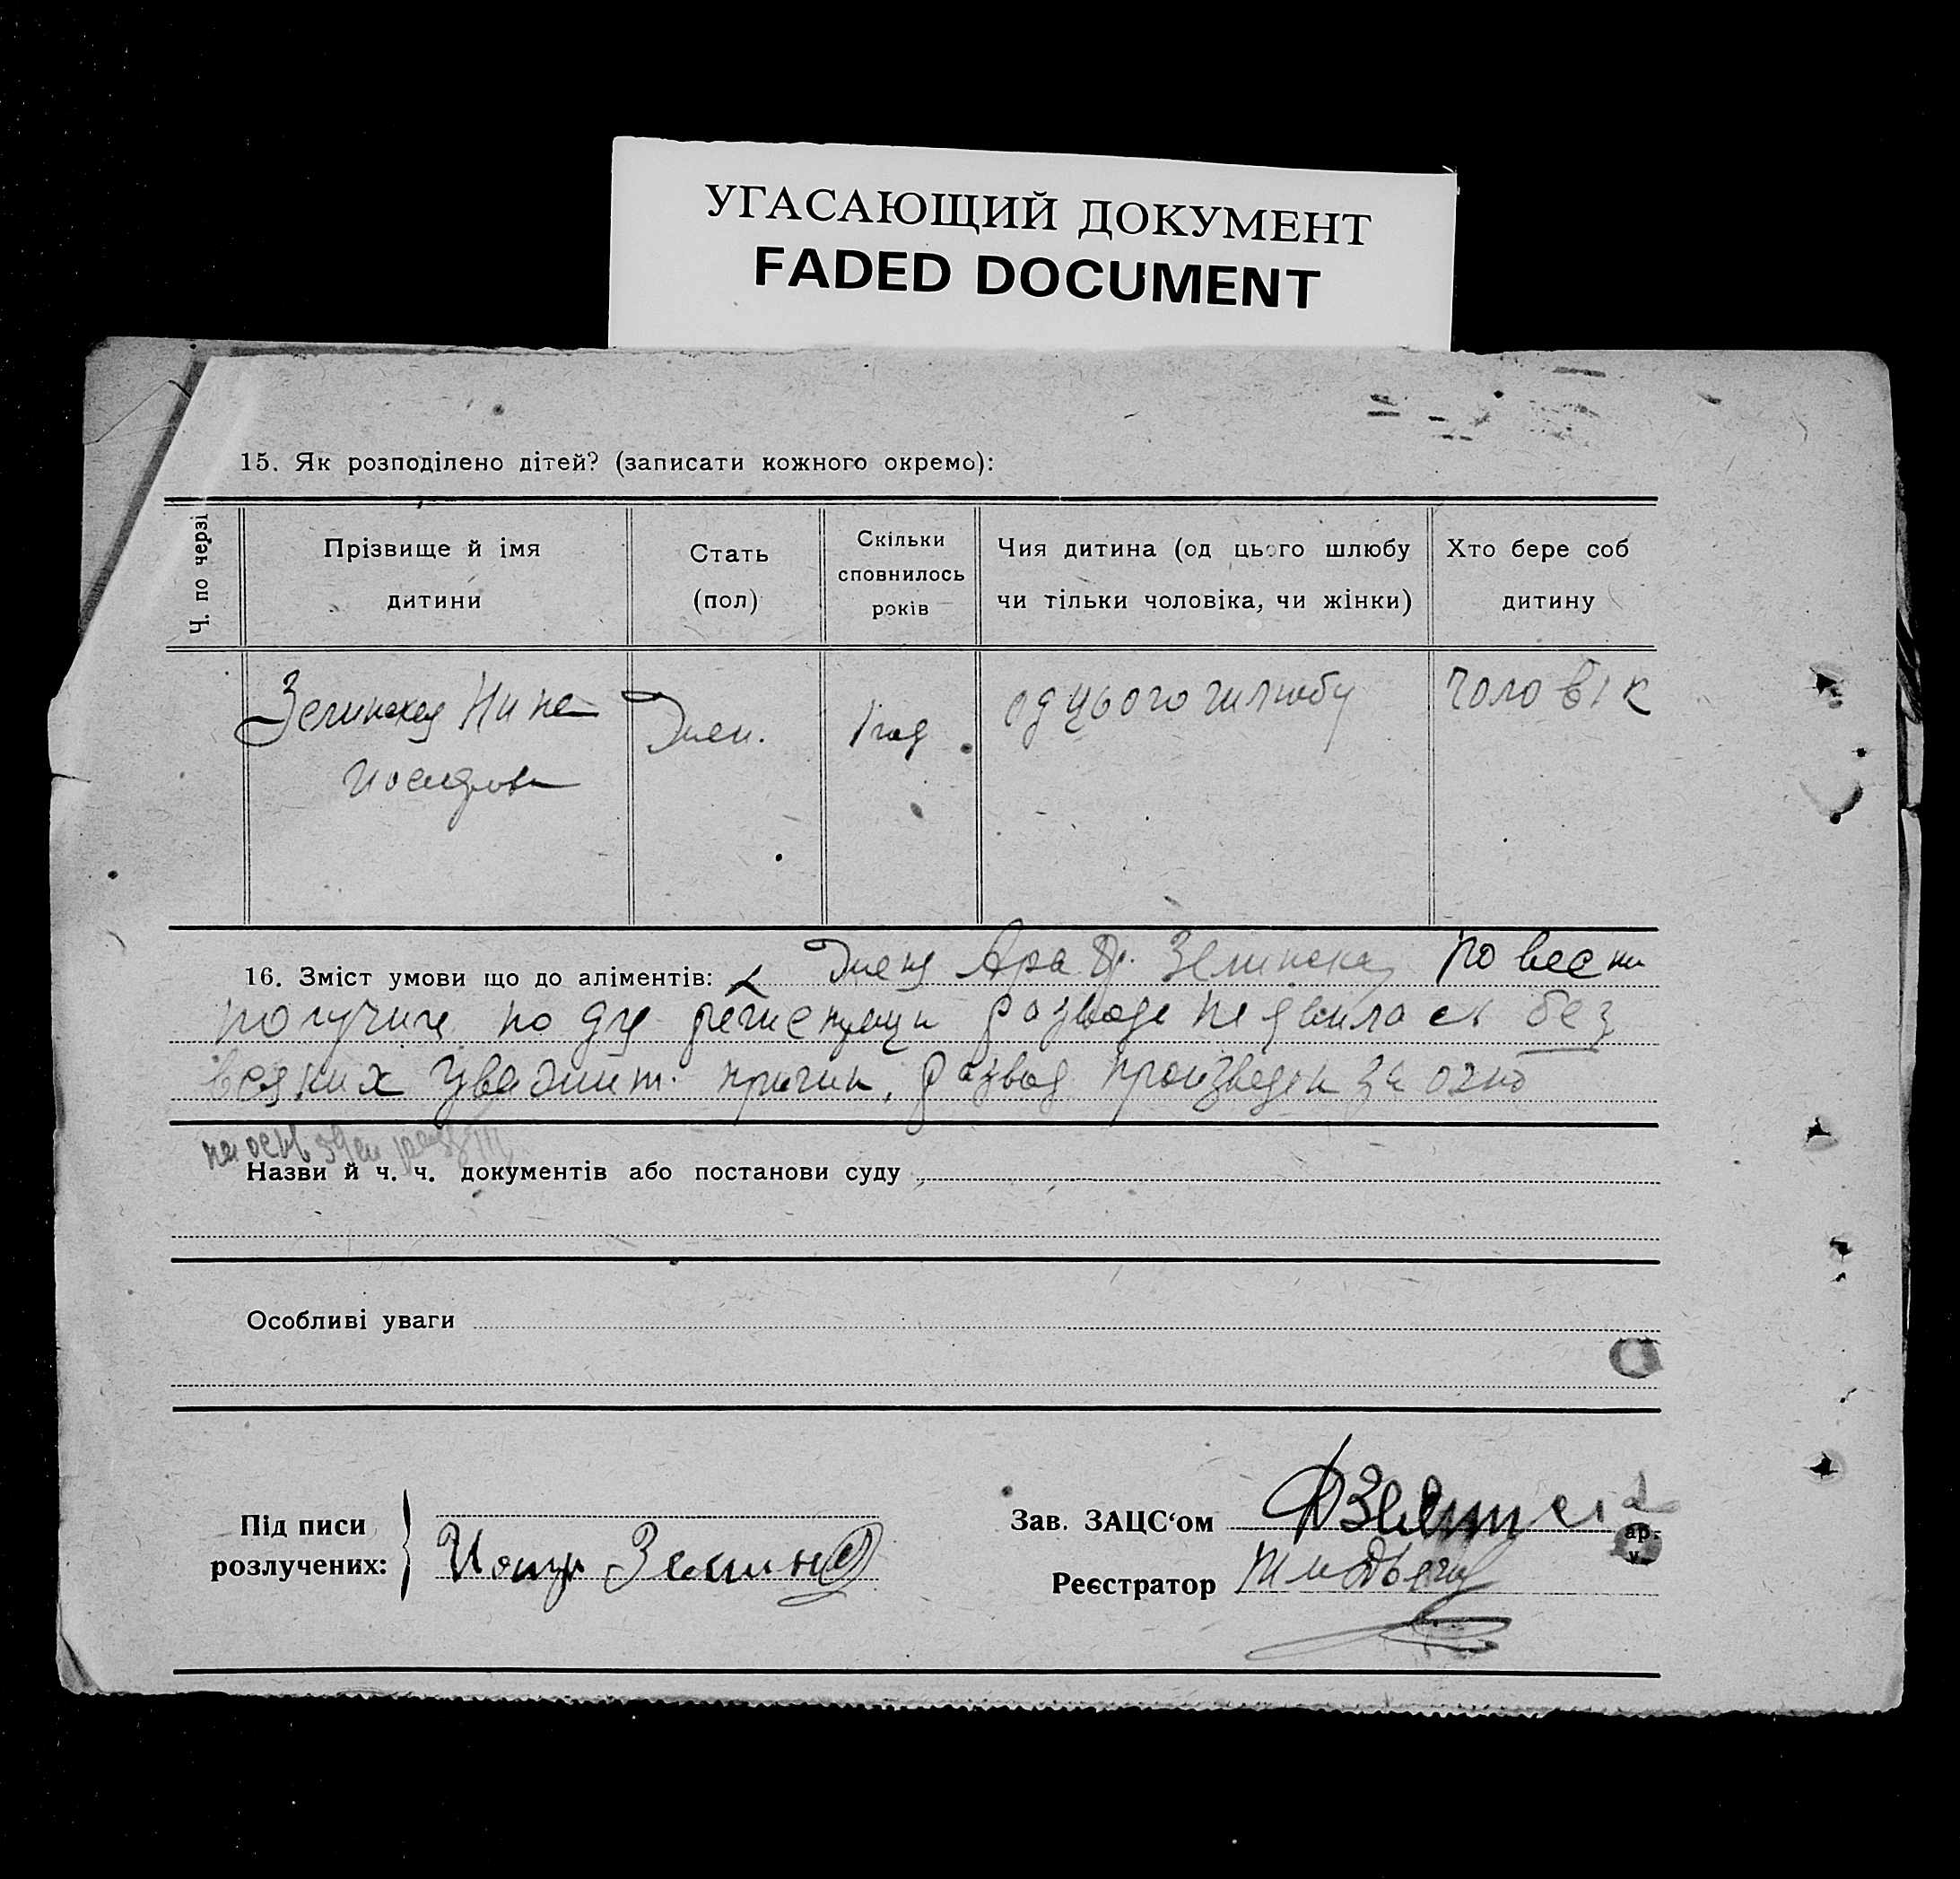 УГАСАЮЩИЙ ДОКУМЕНТ
FADED DOCUMENT
15. Як розподілено дітей? (записати кожного окремо):
Ч. по черзі
Прізвище й імя
дитини
Стать
(пол)
Скільки
сповнилось
років
Чия дитина (од цього шлюбу
чи тільки чоловіка, чи жінки)
Хто бере соб
дитину
Зелинская Нина
Жен.
1 год
од цього шлюбу
чоловік
16. Зміст умови що до аліментів: Жена Зелинская повестки
получила для регистрации развода не явилась без
всяких уважит. причин, развод произведен заочно
на осн
Назви й ч. ч. документів або постанови суду
Особливі уваги
Під писи
розлучених:
Зав. ЗАЦС‘ом
Реєстратор